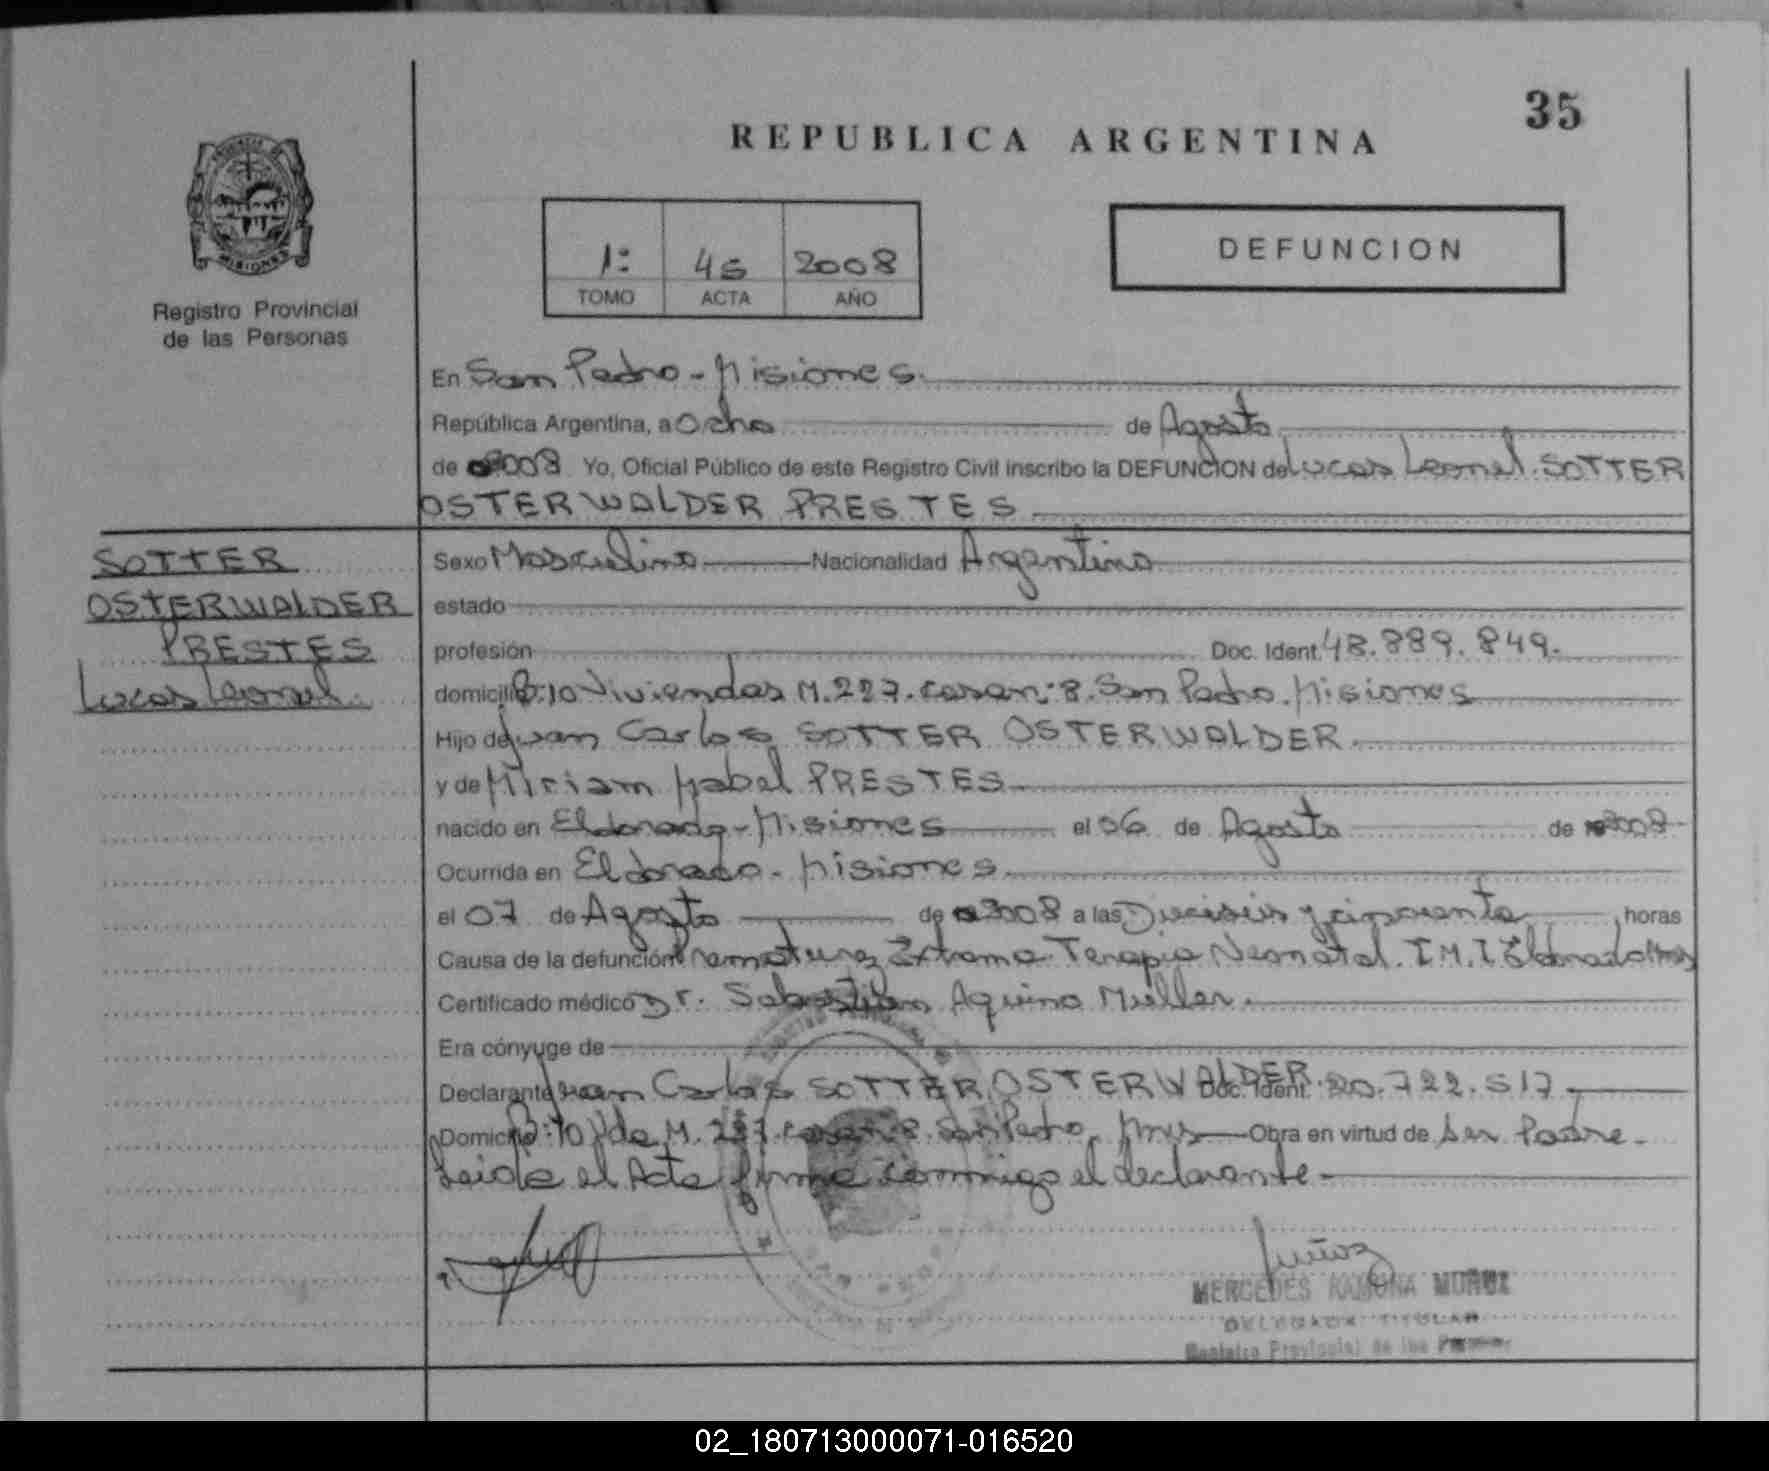 35
REPUBLICA ARGENTINA
DEFUNCION
1: 45 2008
TOMO ACTA AÑO
MISIONES
Registro Provincial
de las Personas
En San Pedro - Misiones.
República Argentina, a Ocho de Agosto
de 2008 Yo, Oficial Público de este Registro Civil inscribo la DEFUNCION de Lucas Leonel. SOTTER
OSTERWALDER PRESTES
SOTTER
OSTERWALDER
PRESTES
Lucas Leonel.
Sexo Masculino Nacionalidad Argentino
estado
profesión Doc. Ident. 48.889.849.
domicilio B:10 Viviendas M.227. casa n: 8. San Pedro. Misiones
Hijo de Juan Carlos SOTTER OSTERWALDER
y de Miriam Mabel PRESTES
nacido en Eldorado - Misiones el 06 de Agosto de 2008
Ocurrida en Eldorado - Misiones
el 07 de Agosto de 2008 a las Dieciseis y cincuenta horas
Causa de la defunción Prematurez Extrema. Terapia Neonatal. Eldorado Mnes
Certificado médico Dr. Sebastian Aquino Muller.
Era cónyuge de
Declarante Juan Carlos SOTTER OSTERWALDER. Doc. Ident. 20.722.517
Domicilio B:10 Vda M. 227. casa n: 8. San Pedro, Mnes Obra en virtud de ser Padre.
Leida el Acta firma conmigo el declarante
Muñoz
MERCEDES RAMONA MUÑOZ
DELEGADA TITULAR
Registro Provincial de las Personas
02_180713000071-016520